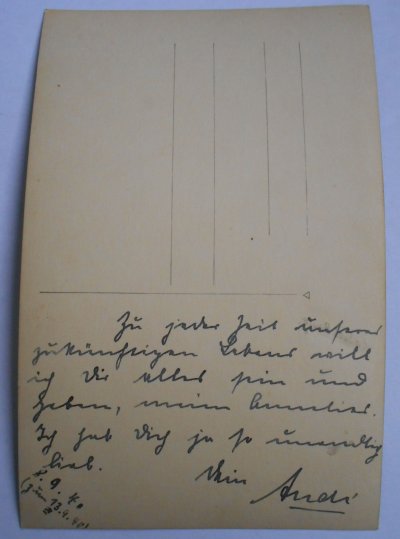 Zu jeder Zeit unseres
zukünftigen Lebens will
ich Dir alles sein und
geben, meine Annelies.
Ich hab Dich ja so unendlich
lieb.
Dein
Andi
9. 40
(zum 13.9.40)